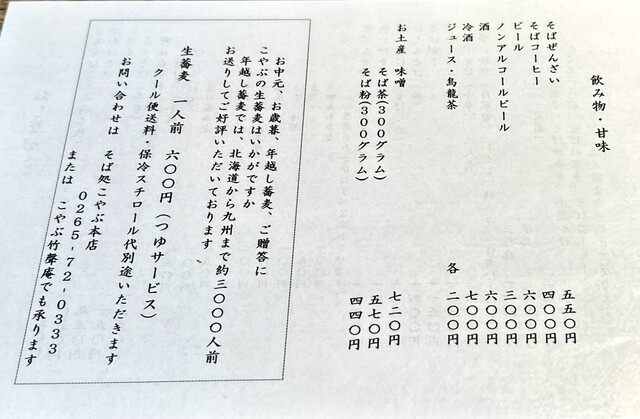 飲み物・甘味
そばぜんざい 五五〇円
そばコーヒー 四〇〇円
ビール 六〇〇円
ノンアルコールビール 三〇〇円
酒 六〇〇円
冷酒 七〇〇円
ジュース・烏龍茶 各 二〇〇円
お土産 味噌 七二〇円
そば茶(300グラム) 五七〇円
そば粉(300グラム) 四四〇円
お中元、お歳暮、年越し蕎麦、ご贈答に
こやぶの生蕎麦はいかがですか
年越し蕎麦では、北海道から九州まで約三〇〇〇人前
お送りしてご好評いただいております
生蕎麦 一人前 六〇〇円(つゆサービス)
クール便送料・保冷スチロール代別途いただきます
お問い合わせは そば処こやぶ本店
0265-72-0333
または こやぶ竹聲庵でも承ります